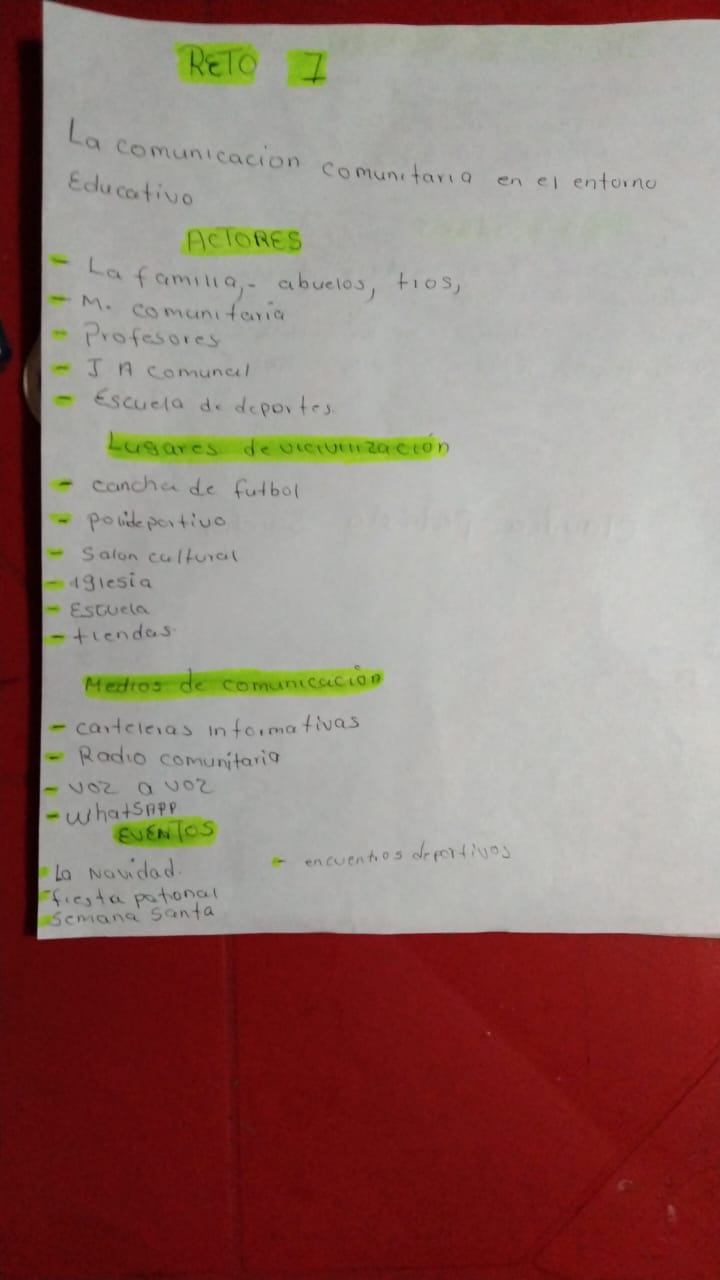 RETO 1
La comunicacion comunitaria en el entorno
Educativo
ACTORES
- La familia,- abuelos, tios,
- M. comunitaria
- Profesores
- J A comunal
- Escuela de deportes.
Lugares de
- cancha de futbol
- polideportivo
- Salon cultural
- iglesia
- Escuela
- tiendas.
Medios de comunicación
- carteleras informativas
- Radio comunitaria
- voz a voz
- WhatSAPP
EVENTOS
- La Navidad.
- encuentros deportivos
- fiesta patronal
- Semana Santa